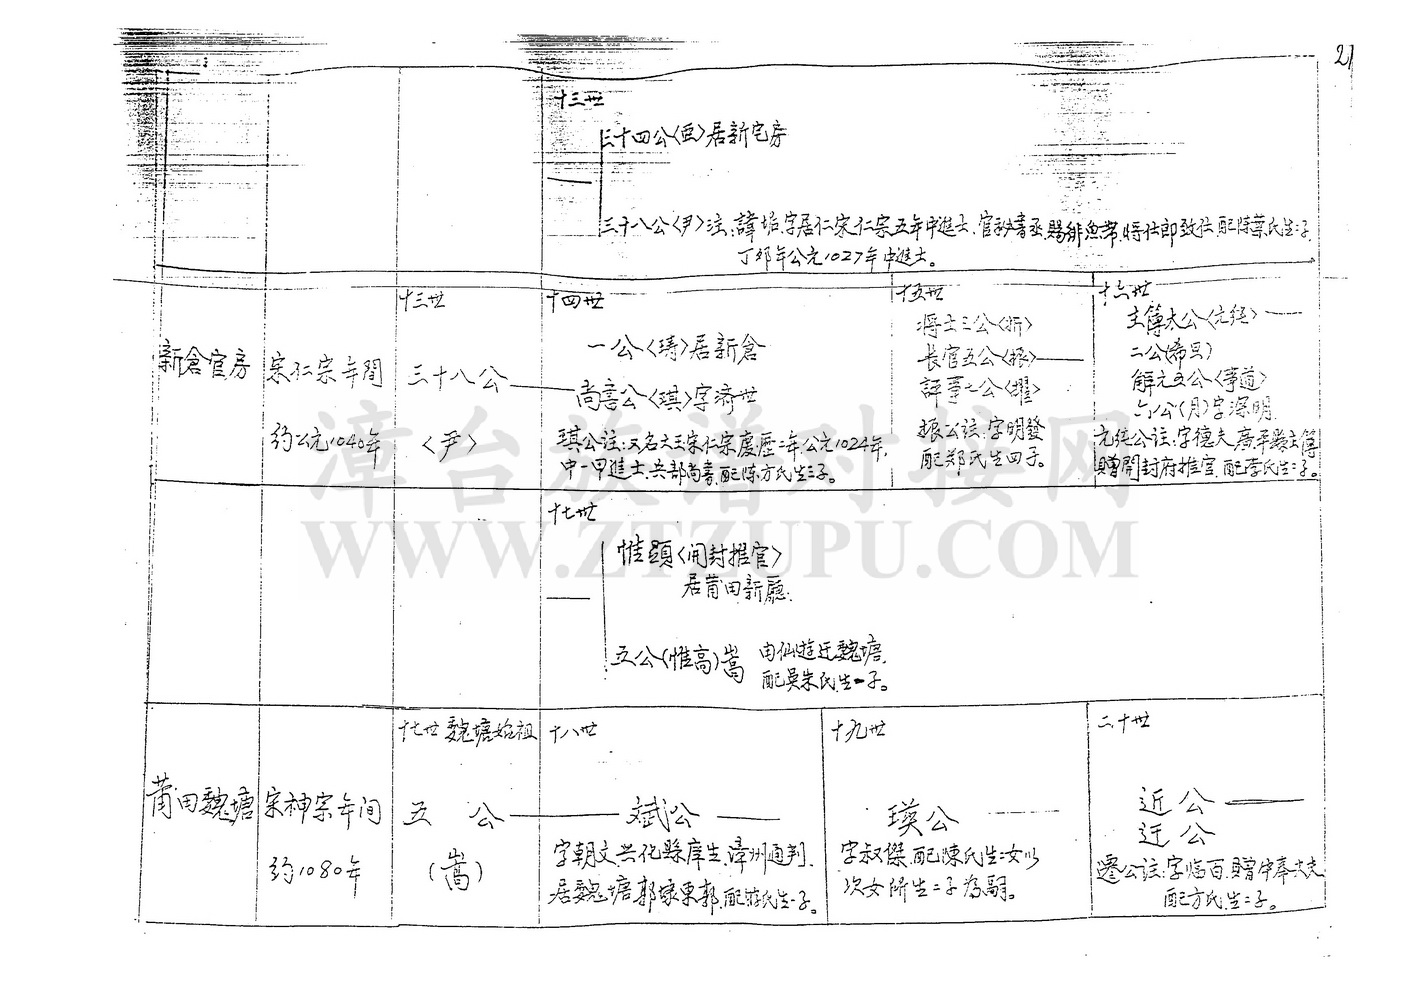 21
十三世
三十四公〈亜〉居新宅房
三十八公〈尹〉注:諱垢,字居仁宋仁宗五年中進士,官秘書丞,賜緋魚帶,將仕郎致仕,配陳葉氏生二子,
丁卯年公元1027年中進士。
新倉官房
宋仁宗年間
約公元1040年
十三世
三十八公
〈尹〉
十四世
一公〈琦〉居新倉
尚書公〈琪〉字濟世
琪公注:又名大王宋仁宗慶歷二年,公元1024年,
中一甲進士,兵部尚書,配陈方氏生三子。
十五世
將士三公〈折〉
長官五公〈振〉
評事七公〈耀〉
振公注:字明發
配郑氏生四子。
十六世
主簿太公〈元純〉
二公(希旦)
解元五公〈專道〉
六公(月)字深明
元純公注:字德夫,廣平縣主簿
贈開封府推官,配李氏生二子。
十七世
惟顕〈開封推官〉
居莆田新廳.
五公(惟高)嵩
由仙遊迁魏塘,
配吳朱氏生一子。
莆田魏塘
宋神宗年间
约1080年
十七世魏塘始祖
五 公
(嵩)
十八世
斌公
字朝文兴化縣庠生,漳州通判,
居魏塘郭墩東郭,配游氏生一子。
十九世
瑛公
字叔傑,配陳氏生二女以
次女所生二子為嗣。
二十世
近公
迁公
遷公注:字临百,贈中奉大夫
配方氏,生二子。
漳台族谱对接网
WWW.ZTZUPU.COM